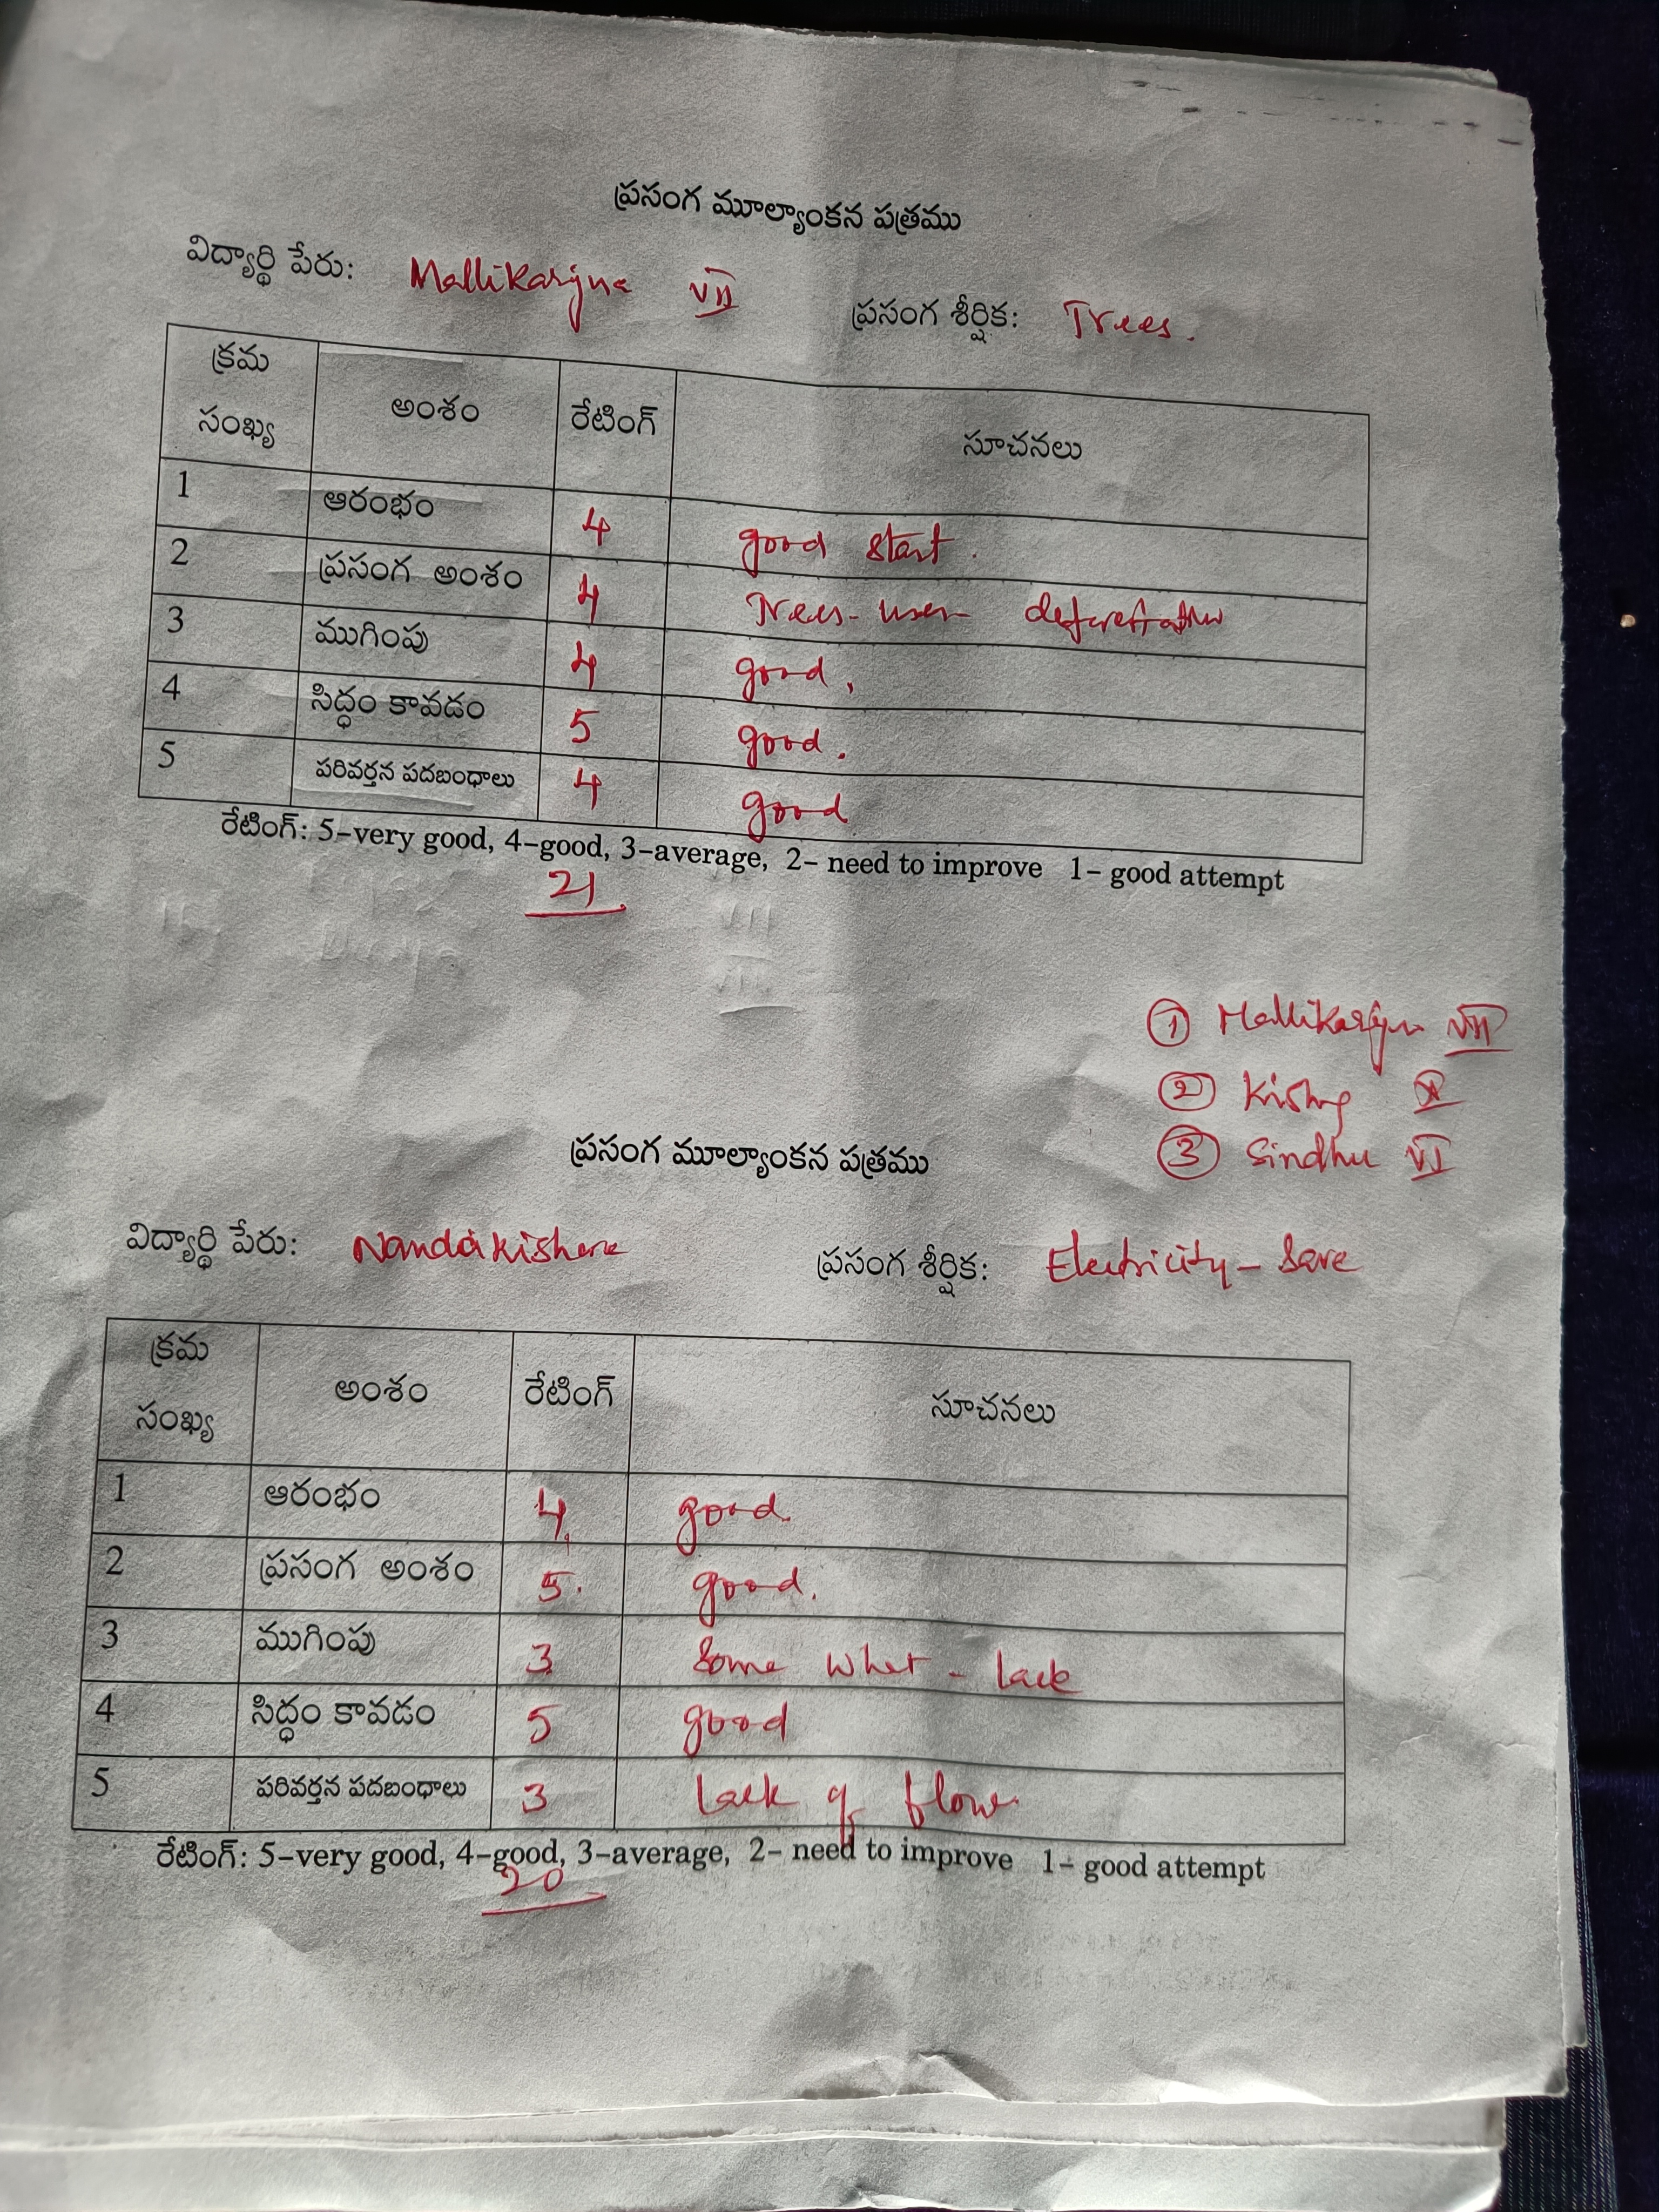 ప్రసంగ మూల్యాంకన పత్రము
విద్యార్థి పేరు: Mallikarjuna VII ప్రసంగ శీర్షిక: Trees.
క్రమ సంఖ్య అంశం రేటింగ్ సూచనలు
1 ఆరంభం 4 good start.
2 ప్రసంగ అంశం 4 Trees-
3 ముగింపు 4 good.
4 సిద్ధం కావడం 5 good.
5 పరివర్తన పదబంధాలు 4 good
రేటింగ్: 5-very good, 4-good, 3-average, 2- need to improve 1- good attempt
21
① Mallikarjun VII
② X
③ Sindhu VI
ప్రసంగ మూల్యాంకన పత్రము
విద్యార్థి పేరు: Nandakishore ప్రసంగ శీర్షిక: Electricity - Save
క్రమ సంఖ్య అంశం రేటింగ్ సూచనలు
1 ఆరంభం 4 good.
2 ప్రసంగ అంశం 5. good.
3 ముగింపు 3 Some what - lack
4 సిద్ధం కావడం 5 good
5 పరివర్తన పదబంధాలు 3 Lack of flow.
రేటింగ్: 5-very good, 4-good, 3-average, 2- need to improve 1- good attempt
20